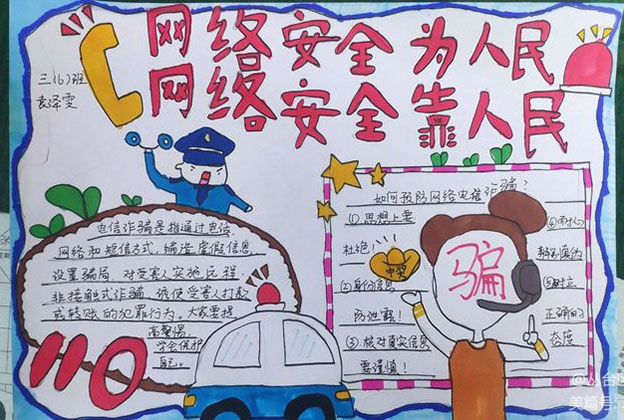 网络安全为人民
网络安全靠人民
三(6)班
袁泽雯
电信诈骗是指通过电话
网络和短信方式,编造虚假信息
设置骗局,对受害人实施远程
非接触式诈骗,诱使受害人打款
或转账的犯罪行为。大家要提
高警惕,
学会保护
自己。
110
如何预防网络电信诈骗?
(1)思想上要
杜绝!
中奖
(2)身份信息
防泄露!
(3)核对真实信息
要谨慎!
骗
(5)树立
正确的
态度
美篇号: